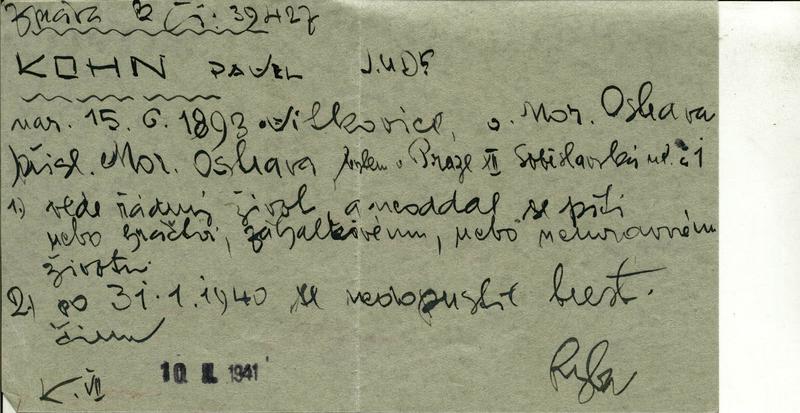 Zpráva k čj. 39427
KOHN PAVEL JUDr
nar. 15. 6. 1893 Vítkovice, o. Mor. Ostrava
přísl. Mor. Ostrava bytem v Praze XII Soběslavská ul. č 1
1.) vede řádný život, a neoddal se pití
nebo hráčství, zahálčivému, nebo nemravnému
životu.
2.) po 31.1.1940 se nedopustil trest.
činu
K. VII 10 II. 1941